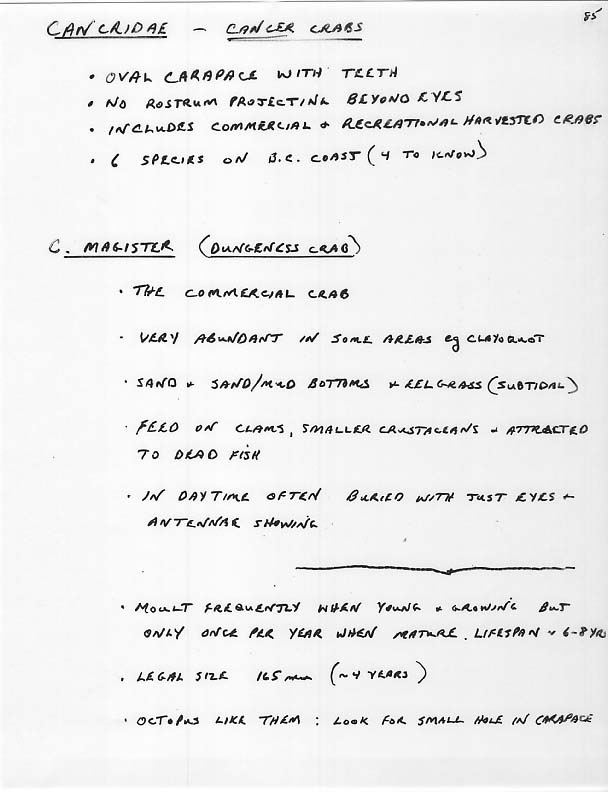 85
CANCRIDAE - CANCER CRABS
• OVAL CARAPACE WITH TEETH
• NO ROSTRUM PROJECTING BEYOND EYES
• INCLUDES COMMERCIAL + RECREATIONAL HARVESTED CRABS
• 6 SPECIES ON B.C. COAST (4 TO KNOW)
C. MAGISTER (DUNGENESS CRAB)
• THE COMMERCIAL CRAB
• VERY ABUNDANT IN SOME AREAS eg CLAYOQUOT
• SAND + SAND/MUD BOTTOMS + EELGRASS (SUBTIDAL)
• FEED ON CLAMS, SMALLER CRUSTACEANS + ATTRACTED
TO DEAD FISH
• IN DAYTIME OFTEN BURIED WITH JUST EYES +
ANTENNAE SHOWING
• MOULT FREQUENTLY WHEN YOUNG + GROWING BUT
ONLY ONCE PER YEAR WHEN MATURE. LIFESPAN ~ 6-8 YRS
• LEGAL SIZE 165 mm (~4 YEARS)
• OCTOPUS LIKE THEM : LOOK FOR SMALL HOLE IN CARAPACE